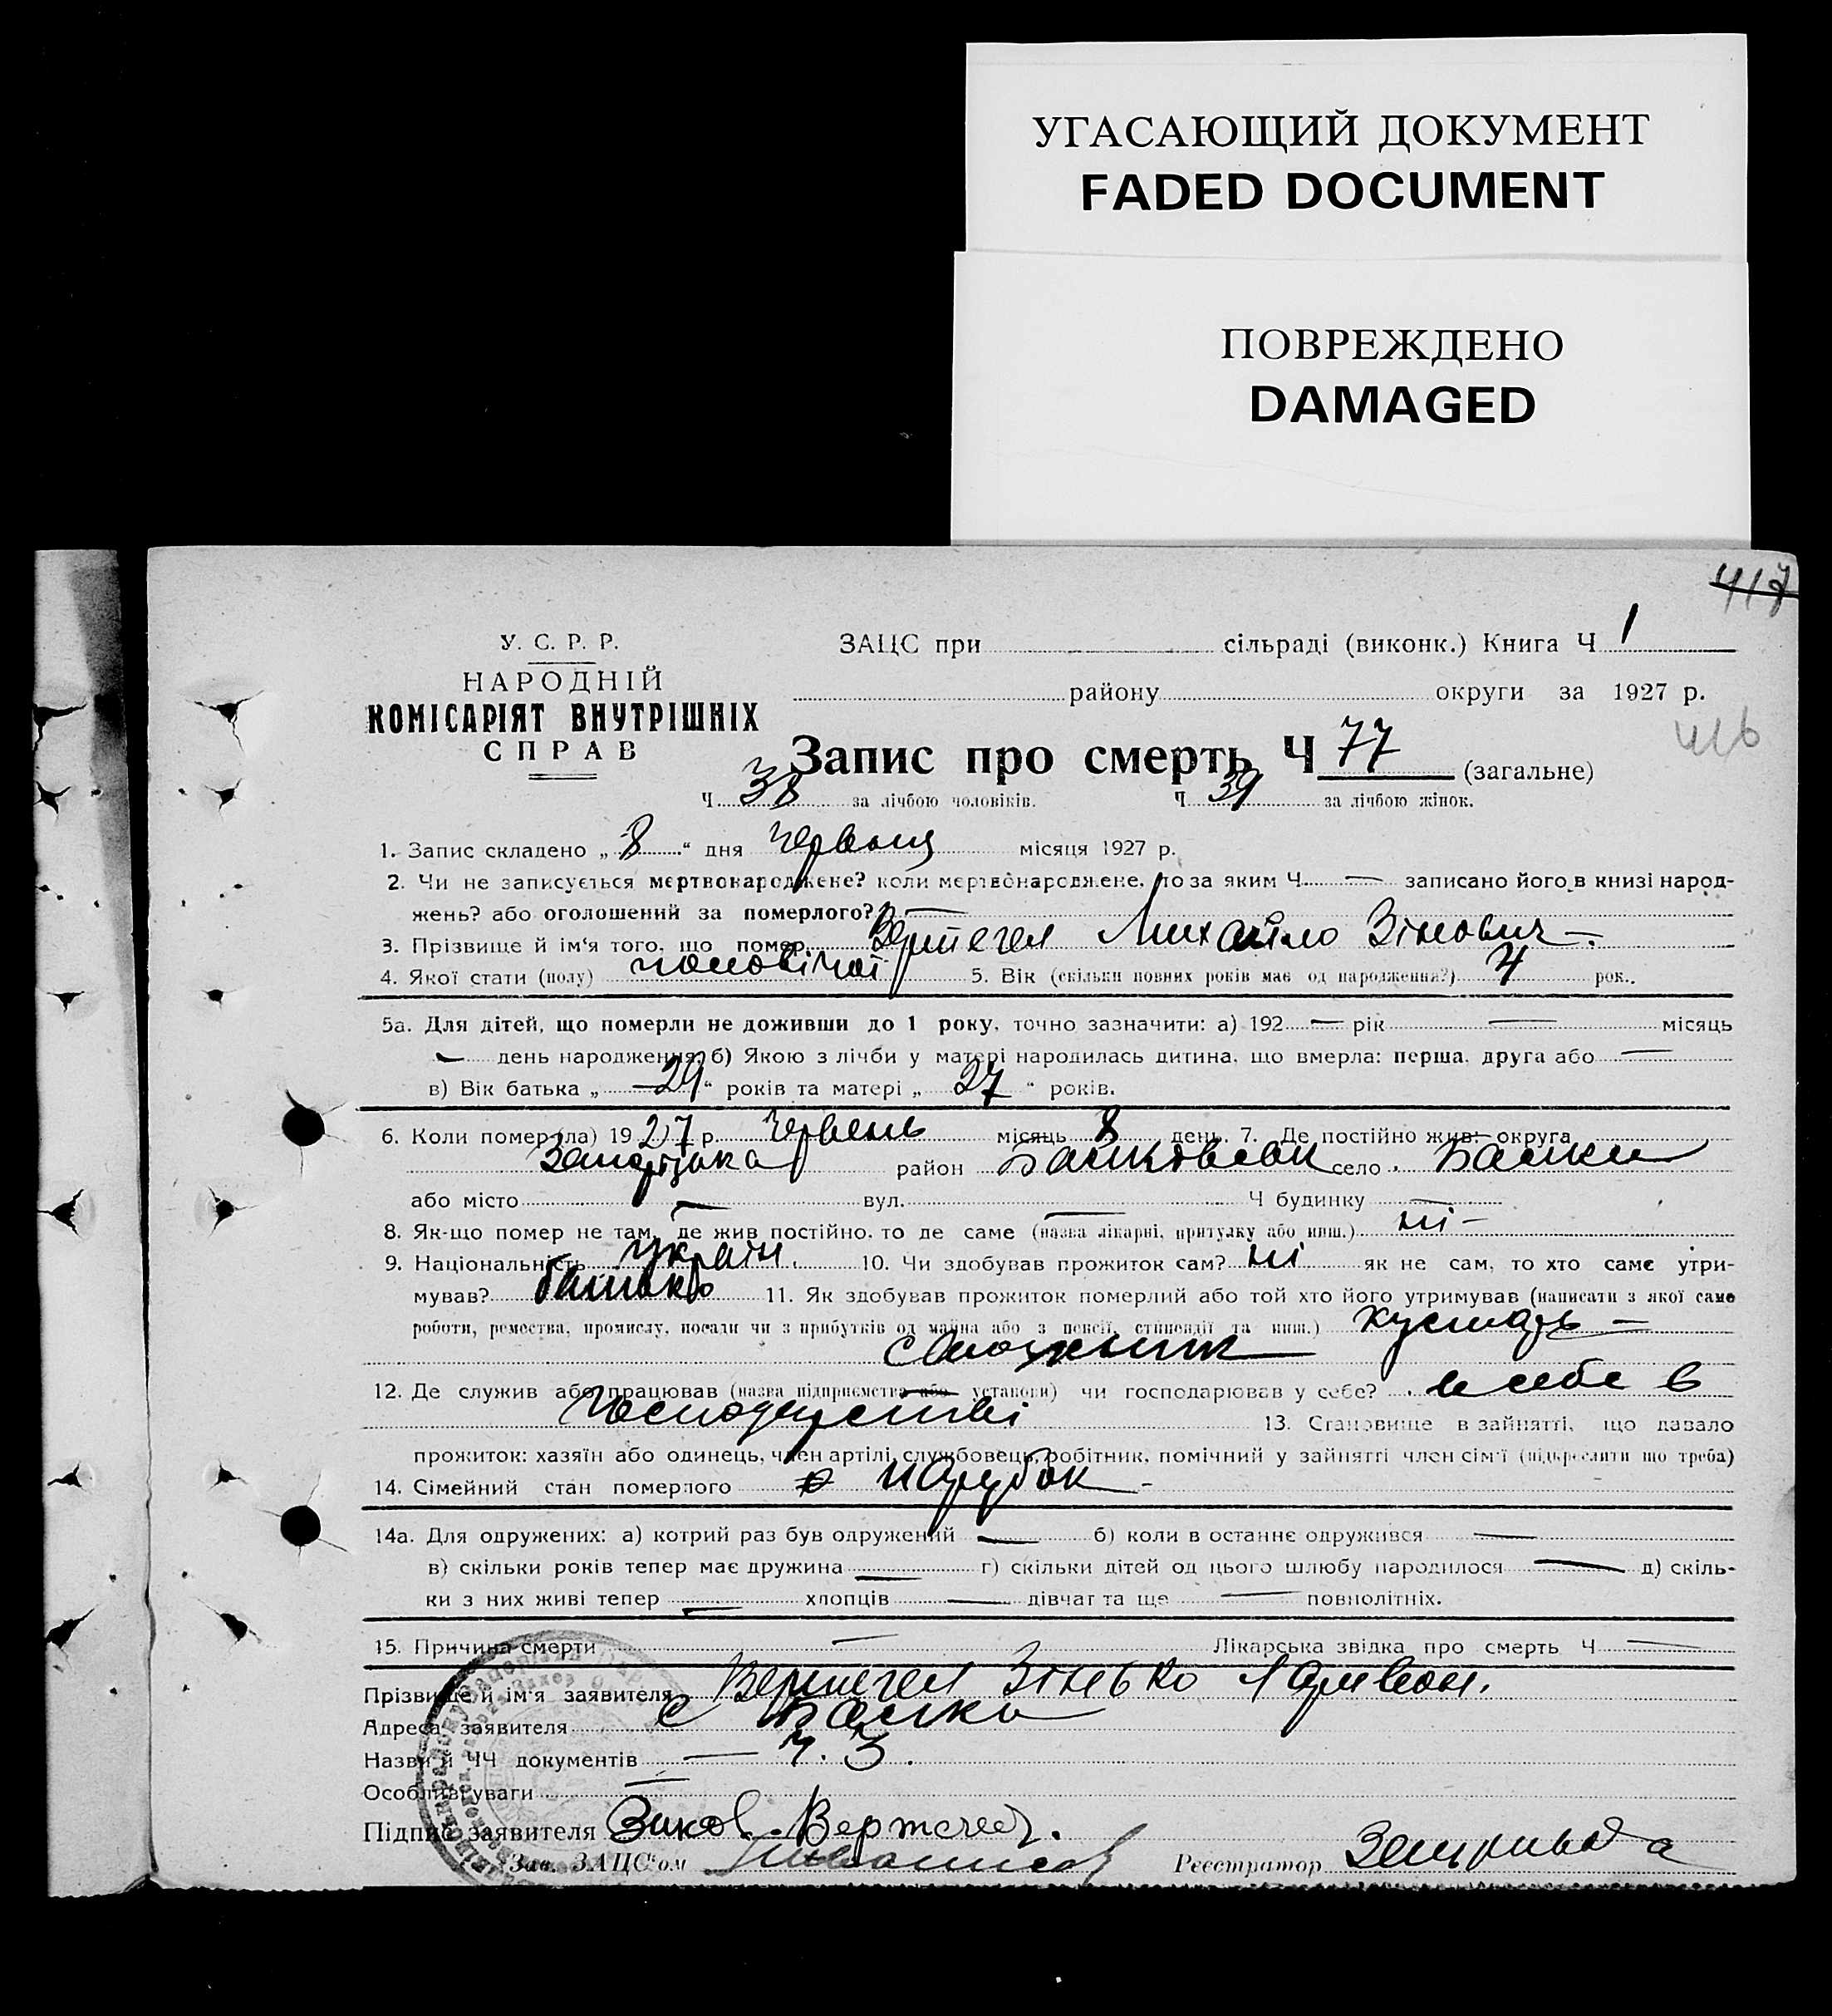 УГАСАЮЩИЙ ДОКУМЕНТ
FADED DOCUMENT
ПОВРЕЖДЕНО
DAMAGED
417
У. С. Р. Р.
НАРОДНІЙ
КОМІСАРІЯТ ВНУТРІШНІХ
СПРАВ
ЗАЦС при сільраді (виконк.) Книга Ч 1
району округи за 1927 р.
416
Запис про смерть Ч 77 (загальне)
Ч 38 за лічбою чоловіків. Ч 39 за лічбою жінок.
1. Запис складено „ 8 “ дня червня місяця 1927 р.
2. Чи не записується мертвонароджене? коли мертвонароджене, то за яким Ч — записано його в книзі народ-
жень? або оголошений за померлого? —
3. Прізвище й ім'я того, що помер Вертегел Михайло Зінович —
4. Якої стати (полу) чоловічої 5. Вік (скільки повних років має од народження?) 4 рок.
5а. Для дітей, що померли не доживши до 1 року, точно зазначити: а) 192 — рік — місяць
— день народження б) Якою з лічби у матері народилась дитина, що вмерла: перша, друга або —
в) Вік батька „ 29 “ років та матері „ 27 “ років.
6. Коли помер (ла) 1927 р. Червень місяць 8 день. 7. Де постійно жив: округа
Запорізька район село Балки
або місто — вул. — Ч будинку —
8. Як-що помер не там, де жив постійно, то де саме (назва лікарні, притулку або инш.) ні —
9. Національність україн. 10. Чи здобував прожиток сам? ні як не сам, то хто саме утри-
мував? батько 11. Як здобував прожиток померлий або той хто його утримував (написати з якої саме
роботи, ремества, промислу, посади чи з прибутків од майна або з пенсії, стипендії та инш.) кустарь —
12. Де служив або працював (назва підприємства або установи) чи господарював у себе? в себе в
господарстві 13. Становище в зайнятті, що давало
прожиток: хазяїн або одинець, член артілі, службовець, робітник, помічний у зайнятті член сім'ї (підкреслити що треба)
14. Сімейний стан померлого парубок —
14а. Для одружених: а) котрий раз був одружений — б) коли в останнє одружився —
в) скільки років тепер має дружина — г) скільки дітей од цього шлюбу народилося — д) скіль-
ки з них живі тепер — хлопців — дівчат та ще — повнолітніх.
15. Причина смерти — Лікарська звідка про смерть Ч —
Прізвище й ім'я заявителя Вертегел Зінько Ларивон.
Адреса заявителя с Балки
Назви й ЧЧ документів — Ч. 3.
Особливі уваги —
Підпис заявителя Зинов. Вертегел.
Зав. ЗАЦС'ом Реєстратор